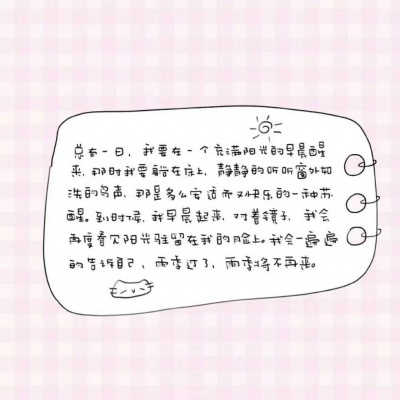 总有一日，我要在一个充满阳光的早晨醒
来，那时我要躺在床上，静静的听听窗外如
洗的鸟声，那是多么安适而又快乐的一种苏
醒。到时候，我早晨起来，对着镜子，我会
再度看见阳光驻留在我的脸上。我会一遍遍
的告诉自己，雨季过了，雨季将不再来。